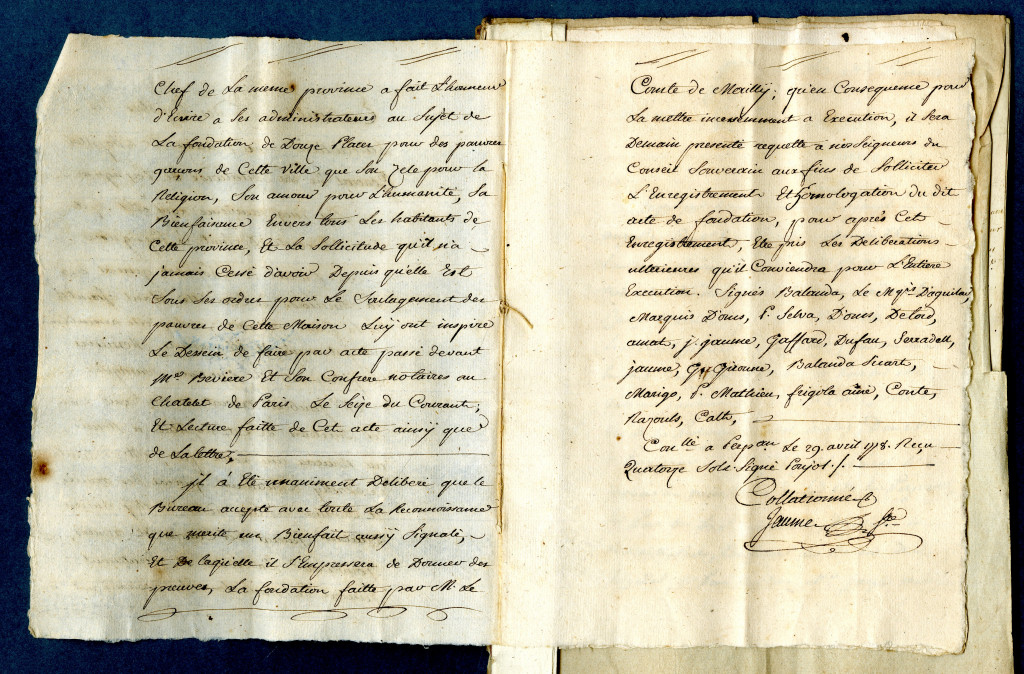 Chef de La meme province a fait L'honneur
d'Ecrire a Ses administrateurs au Sujet de
La fondation de Douze Places pour des pauvres
garçons de Cette Ville que Son Zele pour la
Religion, Son amour pour L'humanité, Sa
Bienfaisance Envers tous Les habitants de
Cette province, Et La Sollicitude qu'il n'a
jamais Cessé d'avoir Depuis qu'elle Est
Sous Ses ordres pour Le Soulagement des
pauvres de Cette Maison Luy ont inspire
Le Dessein de faire par acte passé devant
Me. Beviere Et Son Confrere notaires au
Chatelet de Paris Le Seize du Courant;
Et Lecture faitte de Cet acte aussy que
de La lettre,
jl à Eté unaniment Deliberé que le
Bureau accepte avec toute La Reconnoissance
que merite un Bienfait aussy Signalé,
Et De laquelle il S'Empressera de Donner des
preuves, La fondation faitte par M. Le
Comte de Mailly; qu'en Consequence pour
La mettre incessemment a Execution, il Sera
Demain presenté requette a nosseigneurs du
Conseil Souverain aux fins de Solliciter
L'Enregistrement Et homologation du dit
acte de fondation, pour après Cet
Enregistrement, Etre pris Les Deliberations
ulterieures qu'il Conviendra pour L'Entiere
Execution. Signés Balanda, Le Mquis D'aguilar,
Marquis D'oms, F. Selva, D'oms, Delord,
amat, j. jaume, Gaffard, Dufau, Serradell,
jaume, Gironne, Balanda Sicart,
Marigo, P. Mathieu, frigola ainé, Conte,
Razouls, Calt,
Conllé a Perpan. Le 29 avril 178. Reçu
Quatorze Sols Signé Poujos ./.
Collationné
Jaume Sre